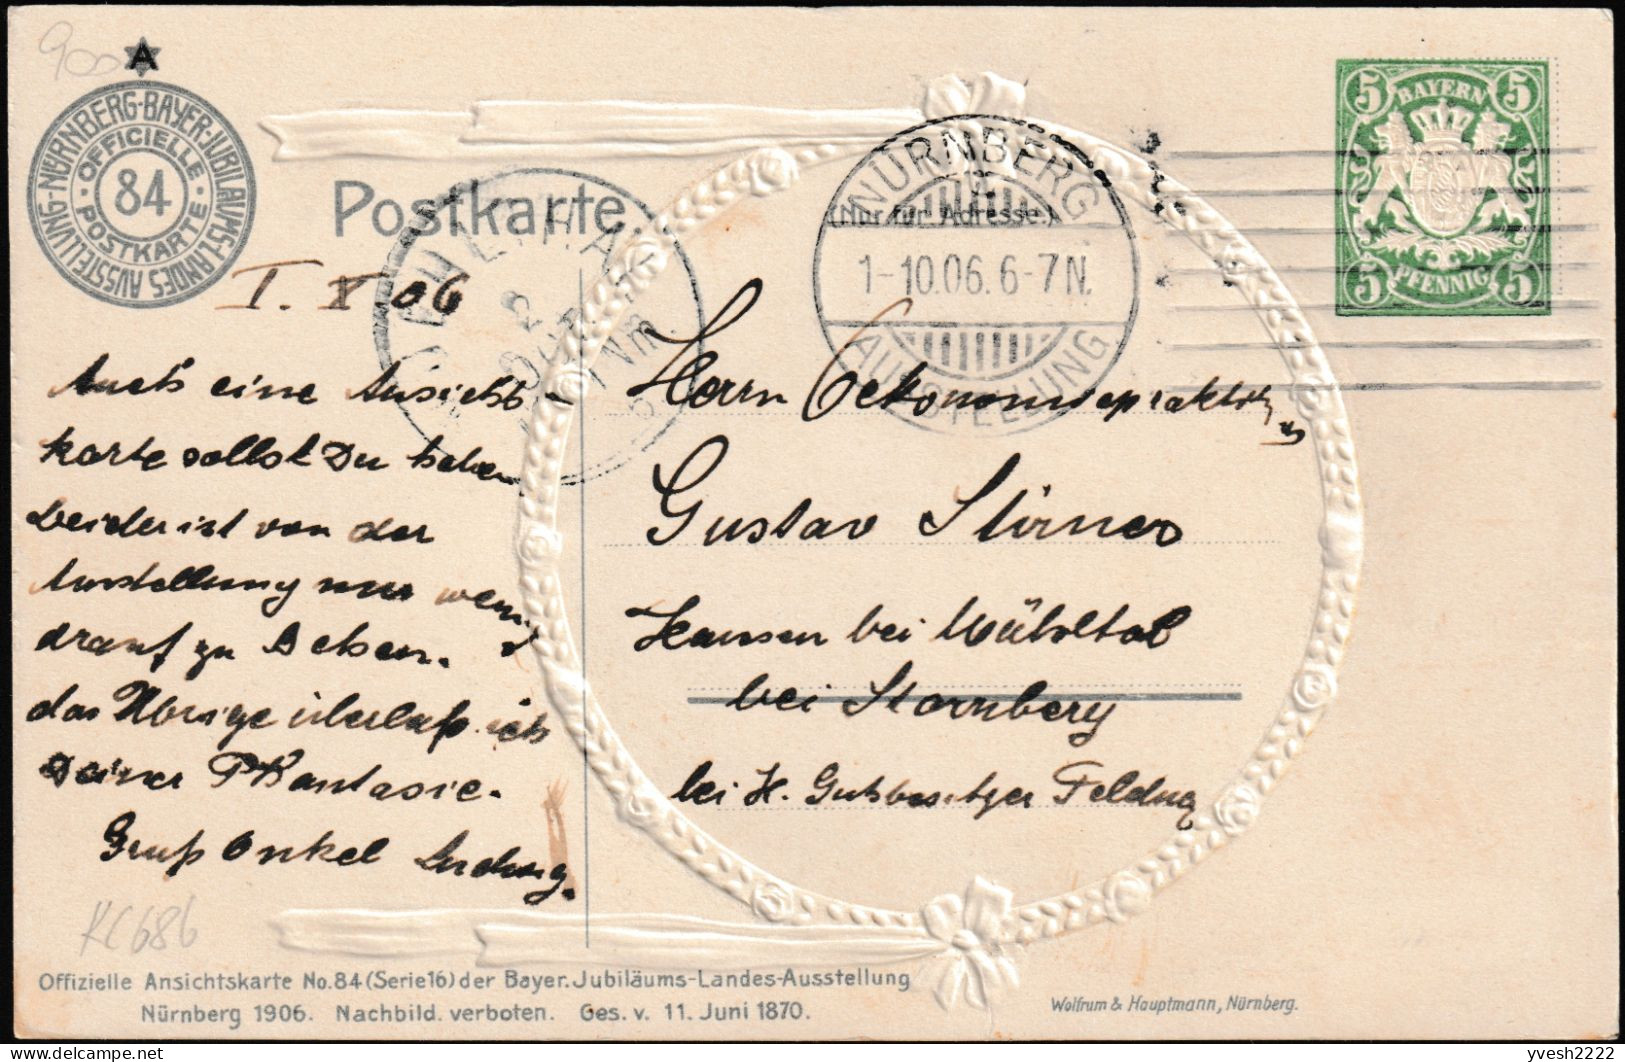 900
A
NÜRNBERG-BAYER-JUBILÄUMS-LANDES AUSSTELLUNG-
· OFFICIELLE · POSTKARTE
84
Postkarte.
(Nur für Adresse.)
NÜRNBERG
1-10.06. 6-7N.
AUSSTELLUNG.
5 BAYERN 5
5 PFENNIG 5
I. X. 06
2
OKT
Nm.
Auch eine Ansichts-
karte sollst Du haben
leider ist von der
Ausstellung nur wenig
drauf zu sehen.
das Übrige überlaß ich
Deiner Phantasie.
Gruß Onkel Ludwig.
Herrn Oekonomiepraktik
Gustav Stirner
Hausen bei Mühltal
bei Starnberg
bei H. Gutsbesitzer
KC686
Offizielle Ansichtskarte No.84 (Serie 16) der Bayer. Jubiläums-Landes-Ausstellung
Nürnberg 1906. Nachbild. verboten. Ges. v. 11. Juni 1870.
Wolfrum & Hauptmann, Nürnberg.
yvesh2222